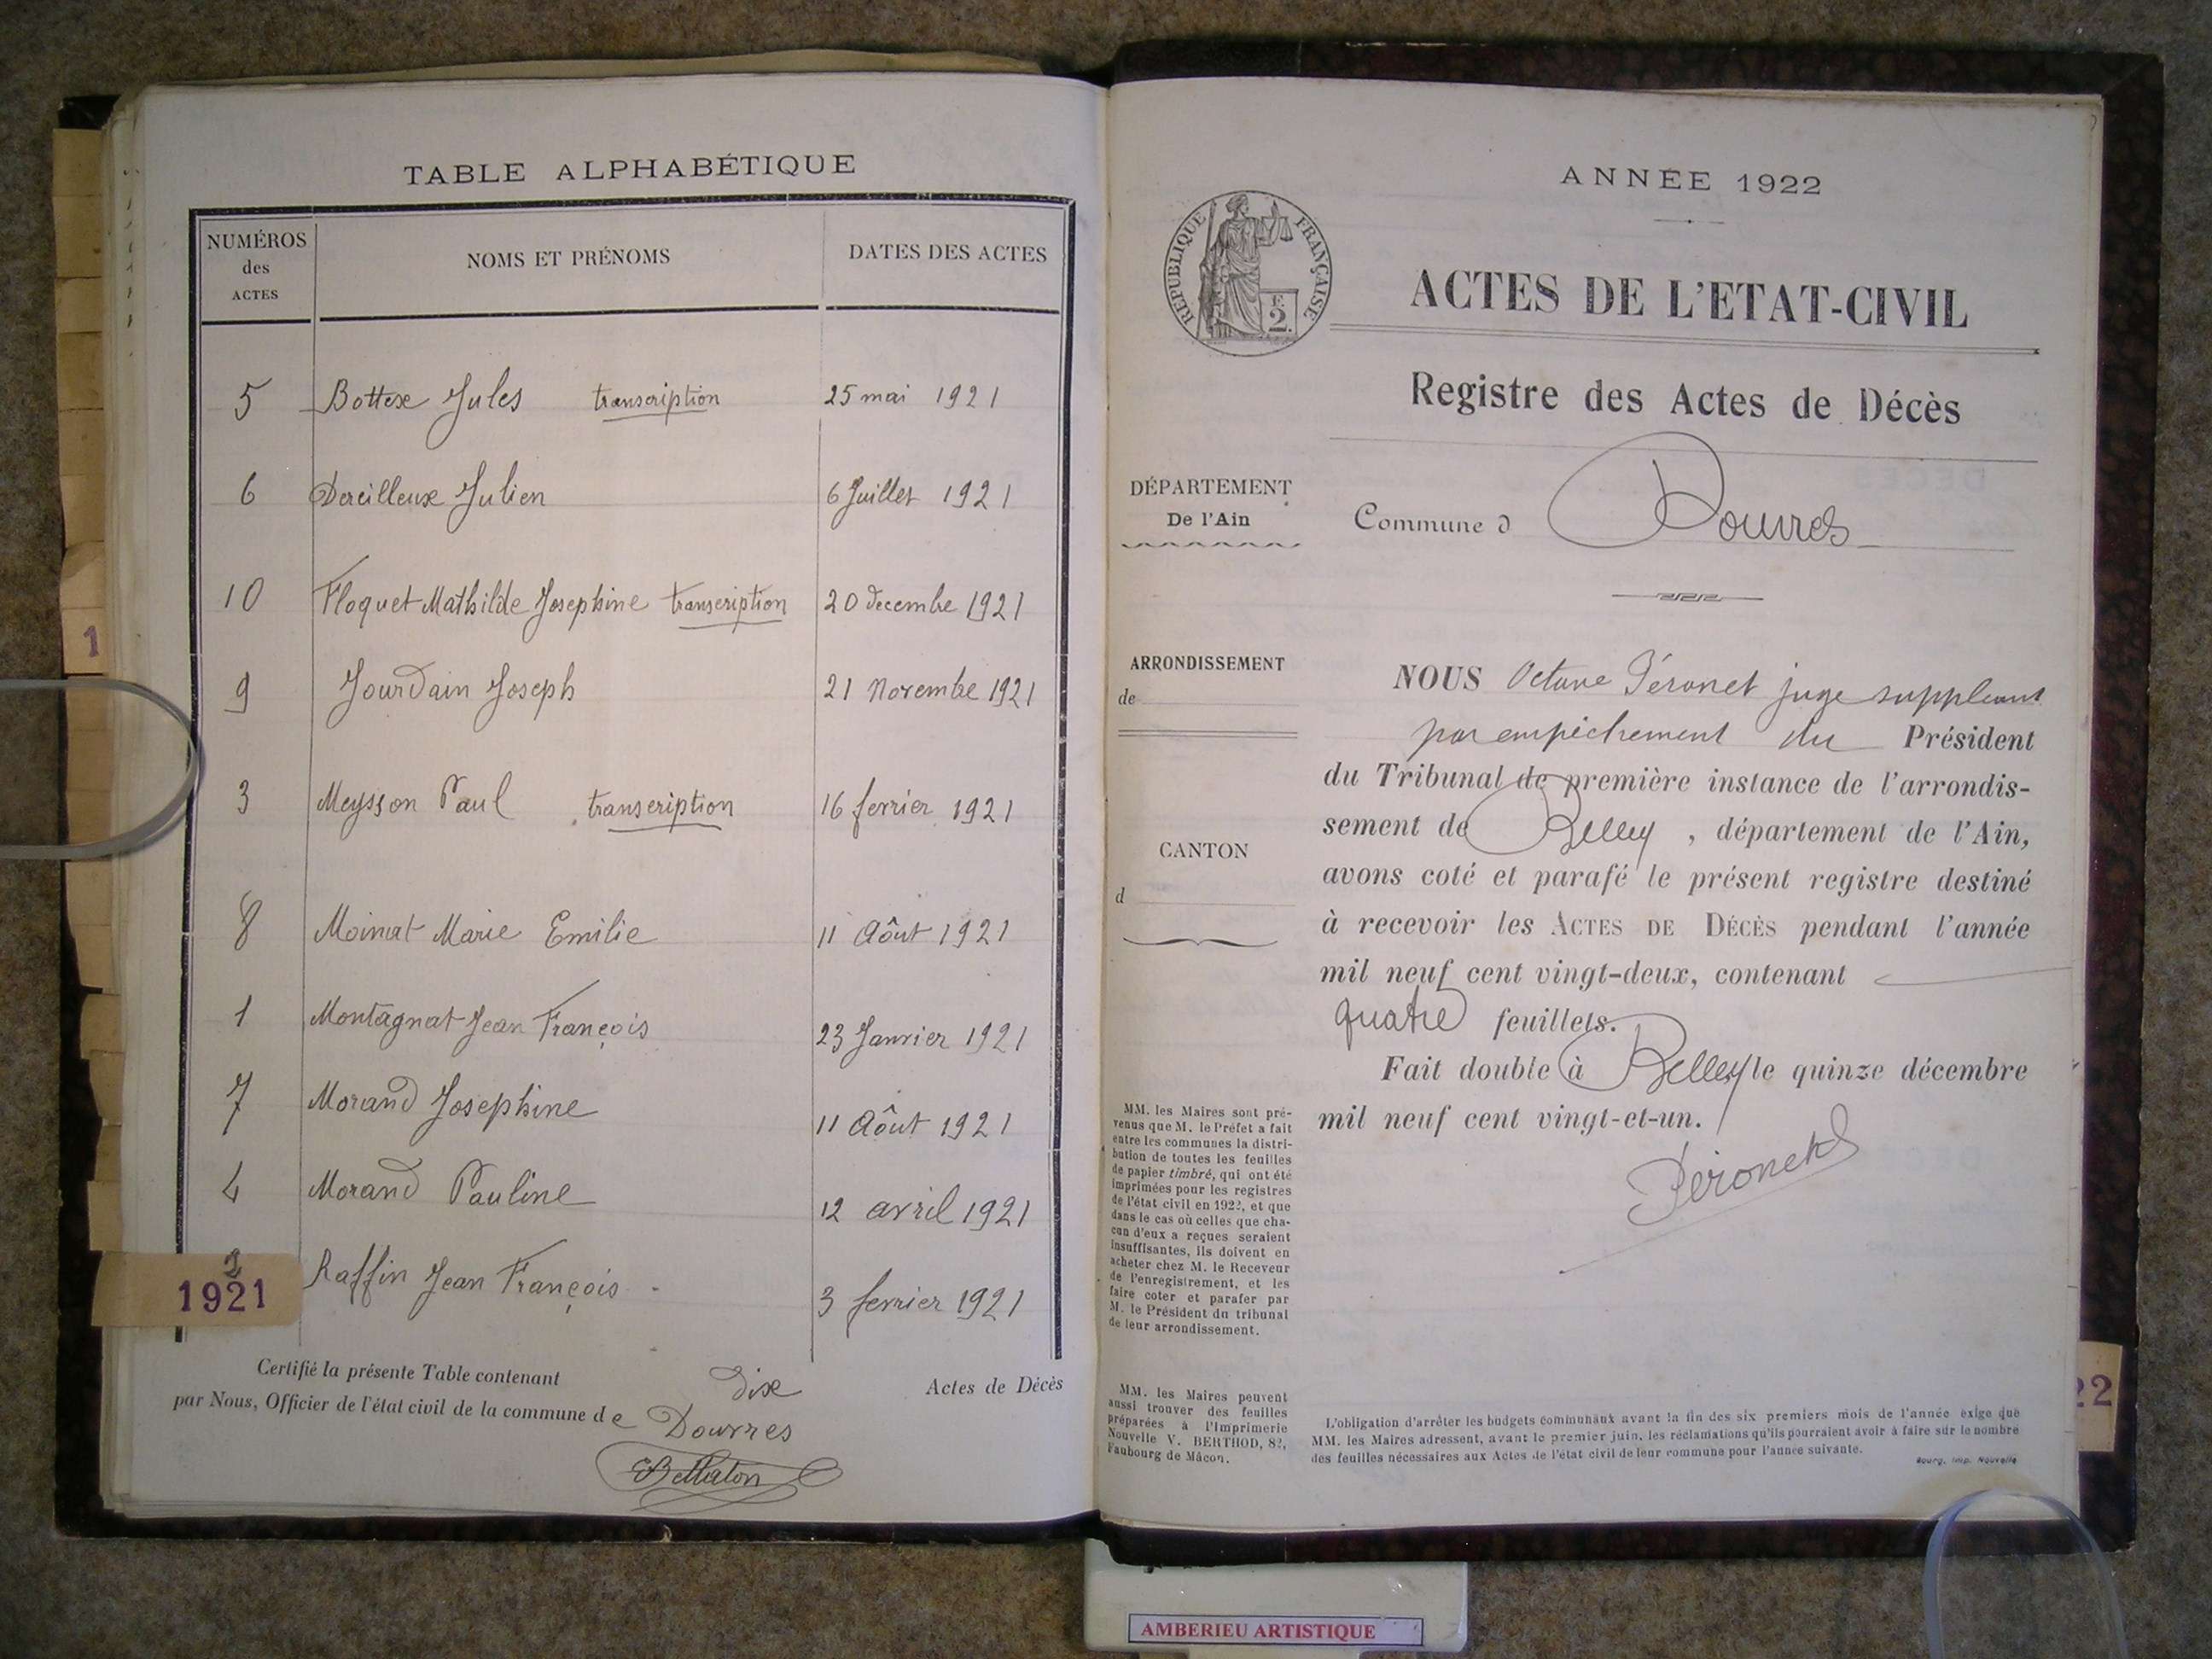 TABLE ALPHABÉTIQUE
NUMÉROS
des
ACTES
NOMS ET PRÉNOMS
DATES DES ACTES
5 Bottex Jules transcription 25 mai 1921
6 Dereilleux Julien 6 Juillet 1921
10 Floquet Mathilde Josephine transcription 20 decembre 1921
9 Jourdain Joseph 21 Novembre 1921
3 Meysson Paul transcription 16 fevrier 1921
8 Moinat Marie Emilie 11 Aôut 1921
1 Montagnat Jean François 23 Janvier 1921
7 Morand Josephine 11 Aôut 1921
4 Morand Pauline 12 avril 1921
2 Raffin Jean François 3 fevrier 1921
1921
1
Certifié la présente Table contenant dix Actes de Décès
par Nous, Officier de l'état civil de la commune de Douvres
ANNÉE 1922
RÉPUBLIQUE FRANÇAISE
F.
2.
ACTES DE L'ETAT-CIVIL
Registre des Actes de Décès
DÉPARTEMENT
De l'Ain
Commune d Douvres
ARRONDISSEMENT
de
CANTON
d
NOUS Octave Péronet juge suppleant
par empêchement du Président
du Tribunal de première instance de l'arrondis-
sement de Belley, département de l'Ain,
avons coté et parafé le présent registre destiné
à recevoir les ACTES DE DÉCÈS pendant l'année
mil neuf cent vingt-deux, contenant
quatre feuillets.
Fait double à Belley le quinze décembre
mil neuf cent vingt-et-un.
Péronet
MM. les Maires sont pré-
venus que M. le Préfet a fait
entre les communes la distri-
bution de toutes les feuilles
de papier timbré, qui ont été
imprimées pour les registres
de l'état civil en 1922, et que
dans le cas où celles que cha-
cun d'eux a reçues seraient
insuffisantes, ils doivent en
acheter chez M. le Receveur
de l'enregistrement, et les
faire coter et parafer par
M. le Président du tribunal
de leur arrondissement.
MM. les Maires peuvent
aussi trouver des feuilles
préparées à l'Imprimerie
Nouvelle V. BERTHOD, 82,
Faubourg de Mâcon.
L'obligation d'arrêter les budgets communaux avant la fin des six premiers mois de l'année exige que
MM. les Maires adressent, avant le premier juin, les réclamations qu'ils pourraient avoir à faire sur le nombre
des feuilles nécessaires aux Actes de l'état civil de leur commune pour l'année suivante.
Bourg, Imp. Nouvelle
22
AMBERIEU ARTISTIQUE